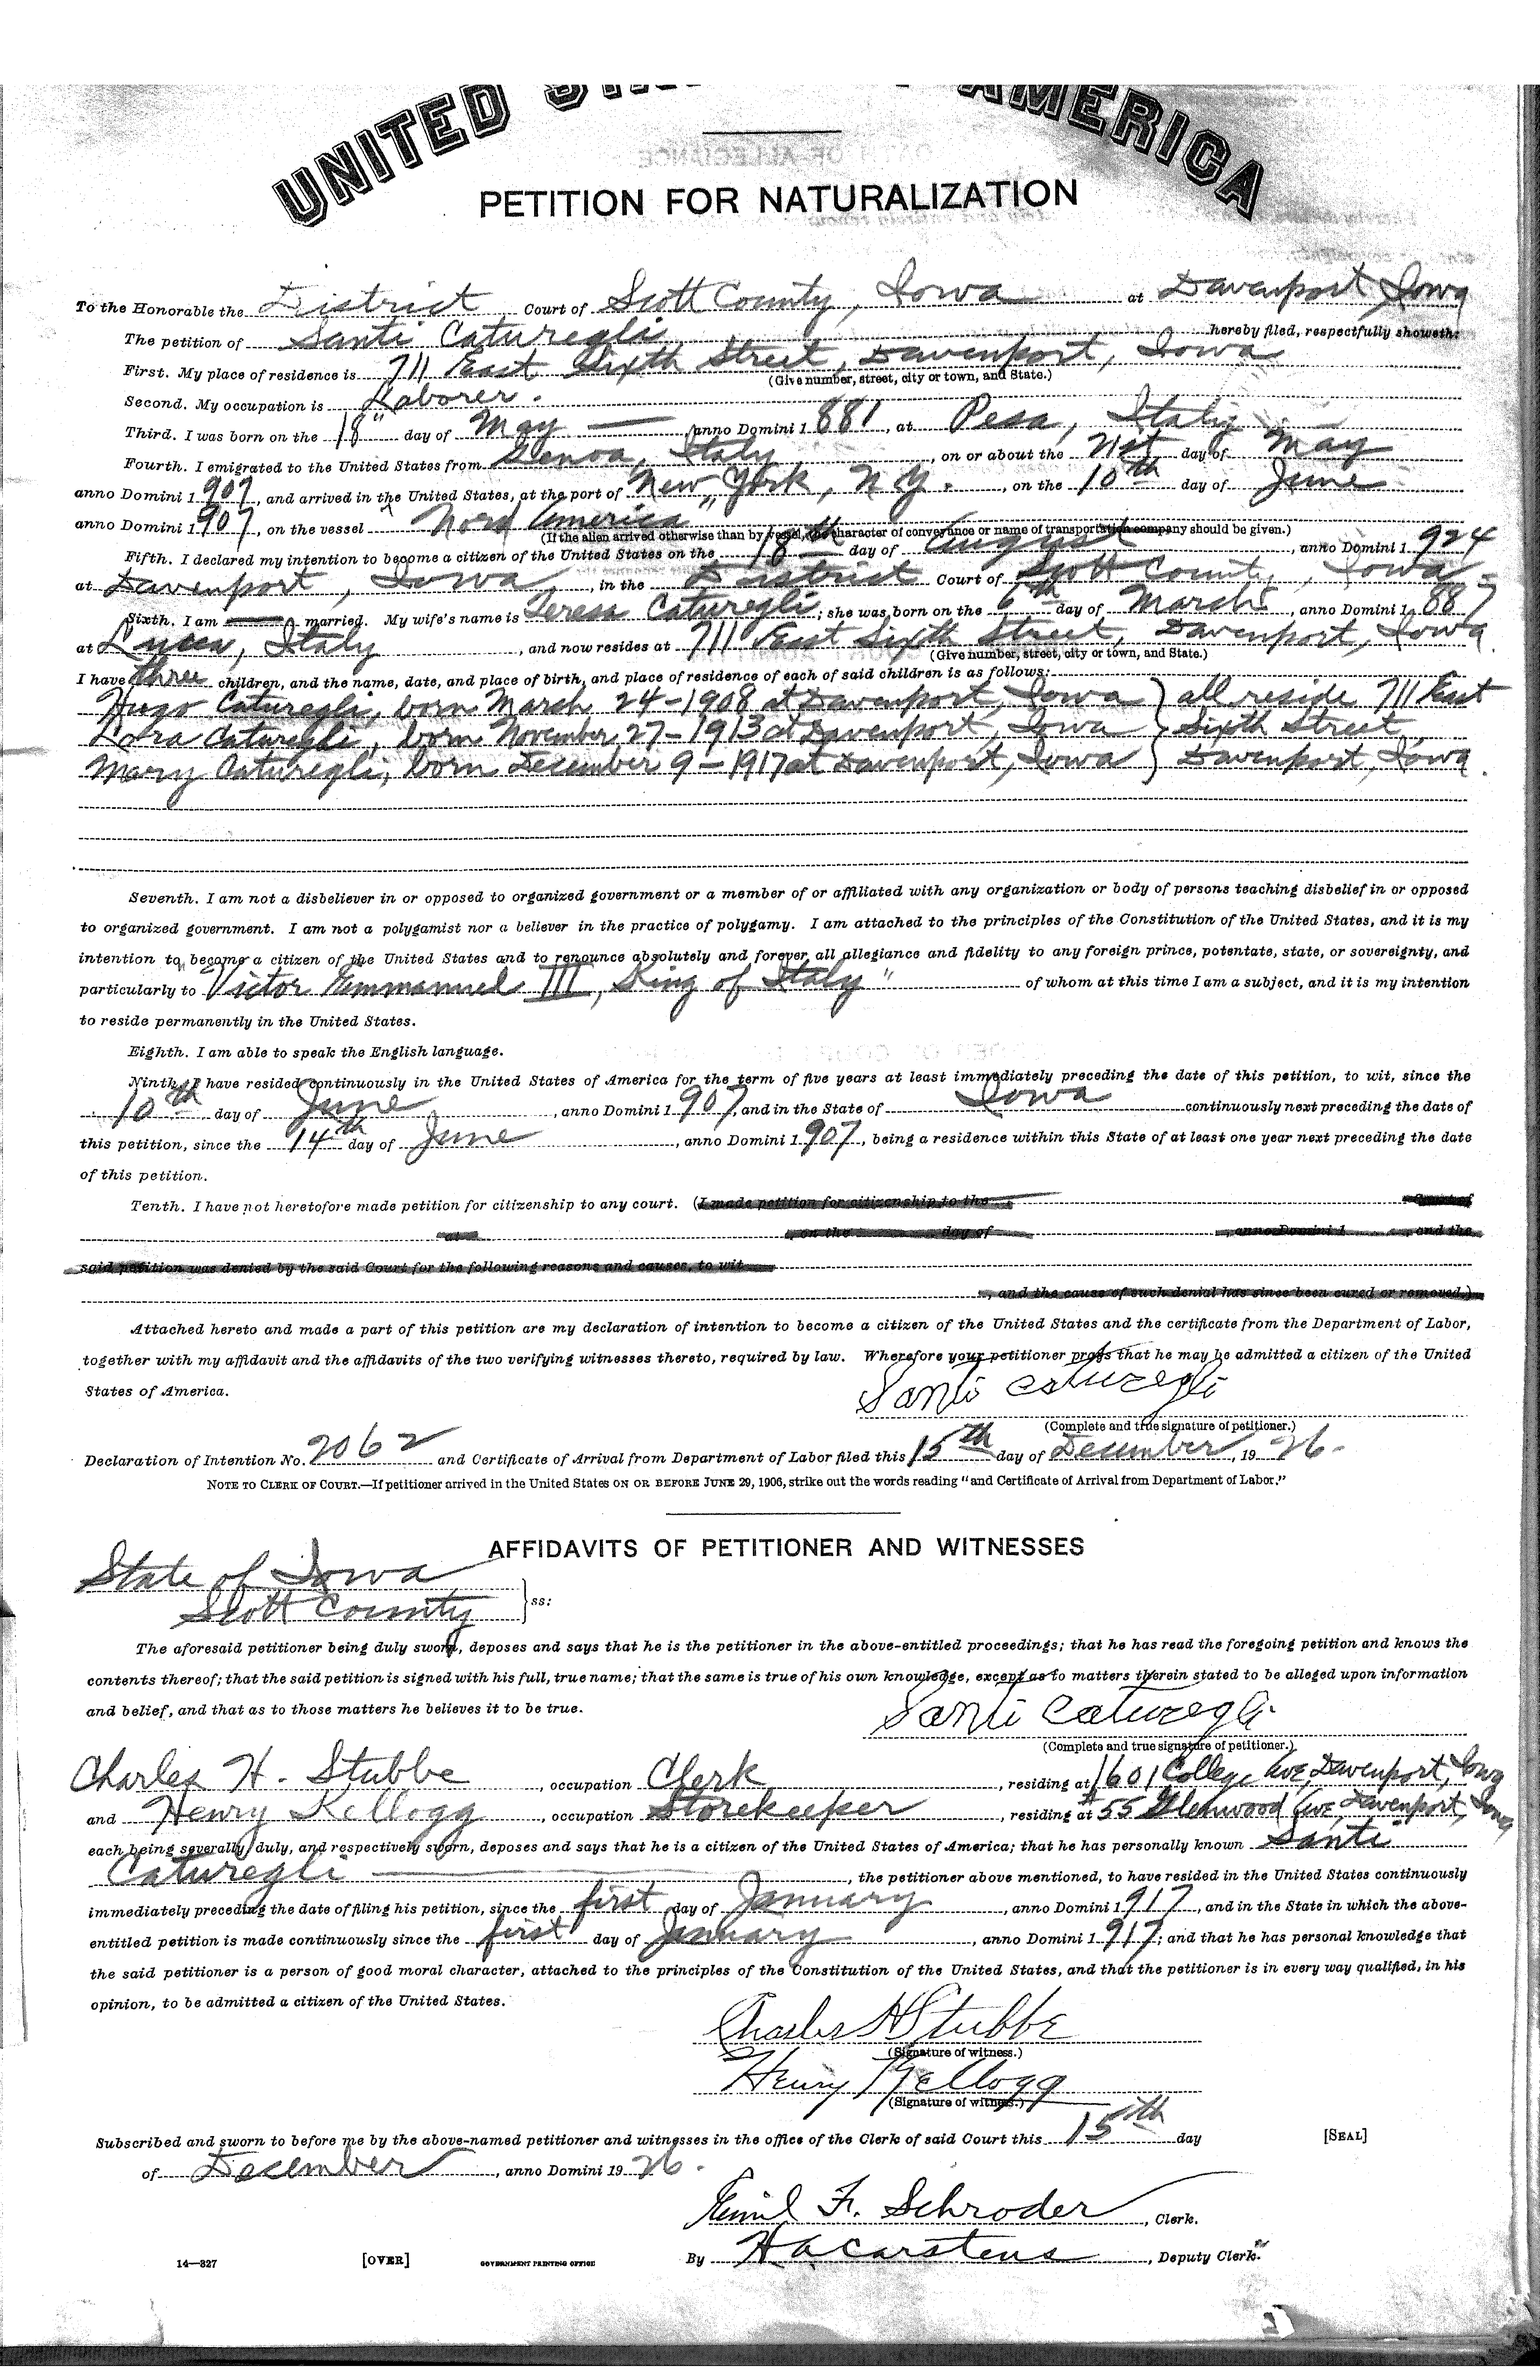 UNITED STATES OF AMERICA
PETITION FOR NATURALIZATION
To the Honorable the District Court of Scott County, Iowa at Davenport, Iowa
The petition of Santi Caturegli, hereby filed, respectfully showeth:
First. My place of residence is 711 East Sixth Street, Davenport, Iowa
(Give number, street, city or town, and State.)
Second. My occupation is Laborer.
Third. I was born on the 18" day of May — anno Domini 1 881, at Pesa, Italy
Fourth. I emigrated to the United States from Genoa, Italy, on or about the 21st day of May
anno Domini 1 907, and arrived in the United States, at the port of New York, N.Y., on the 10th day of June
anno Domini 1 907, on the vessel "Nord America"
(If the alien arrived otherwise than by vessel, the character of conveyance or name of transportation company should be given.)
Fifth. I declared my intention to become a citizen of the United States on the 18th day of August, anno Domini 1 924
at Davenport, Iowa, in the District Court of Scott County, Iowa
Sixth. I am married. My wife's name is Teresa Caturegli; she was born on the 6th day of March, anno Domini 1 887
at Lucca, Italy, and now resides at 711 East Sixth Street, Davenport, Iowa.
(Give number, street, city or town, and State.)
I have three children, and the name, date, and place of birth, and place of residence of each of said children is as follows:
Hugo Caturegli, born March 24-1908 at Davenport, Iowa } all reside 711 East
Lora Caturegli, born November 27-1913 at Davenport, Iowa } Sixth Street,
Mary Caturegli, born December 9-1917 at Davenport, Iowa } Davenport, Iowa.
Seventh. I am not a disbeliever in or opposed to organized government or a member of or affiliated with any organization or body of persons teaching disbelief in or opposed
to organized government. I am not a polygamist nor a believer in the practice of polygamy. I am attached to the principles of the Constitution of the United States, and it is my
intention to become a citizen of the United States and to renounce absolutely and forever all allegiance and fidelity to any foreign prince, potentate, state, or sovereignty, and
particularly to "Victor Emmanuel III, King of Italy" of whom at this time I am a subject, and it is my intention
to reside permanently in the United States.
Eighth. I am able to speak the English language.
Ninth. I have resided continuously in the United States of America for the term of five years at least immediately preceding the date of this petition, to wit, since the
10th day of June, anno Domini 1 907, and in the State of Iowa continuously next preceding the date of
this petition, since the 14th day of June, anno Domini 1 907, being a residence within this State of at least one year next preceding the date
of this petition.
Tenth. I have not heretofore made petition for citizenship to any court. (I made petition for citizenship to the Court of
at, on the day of, anno Domini 1, and the
said petition was denied by the said Court for the following reasons and causes, to wit
, and the cause of such denial has since been cured or removed.)
Attached hereto and made a part of this petition are my declaration of intention to become a citizen of the United States and the certificate from the Department of Labor,
together with my affidavit and the affidavits of the two verifying witnesses thereto, required by law. Wherefore your petitioner prays that he may be admitted a citizen of the United
States of America.
Santi Caturegli
(Complete and true signature of petitioner.)
Declaration of Intention No. 2062 and Certificate of Arrival from Department of Labor filed this 15th day of December, 19 26.
NOTE TO CLERK OF COURT.—If petitioner arrived in the United States ON OR BEFORE JUNE 29, 1906, strike out the words reading "and Certificate of Arrival from Department of Labor."
AFFIDAVITS OF PETITIONER AND WITNESSES
State of Iowa
Scott County } ss:
The aforesaid petitioner being duly sworn, deposes and says that he is the petitioner in the above-entitled proceedings; that he has read the foregoing petition and knows the
contents thereof; that the said petition is signed with his full, true name; that the same is true of his own knowledge, except as to matters therein stated to be alleged upon information
and belief, and that as to those matters he believes it to be true.
Santi Caturegli
(Complete and true signature of petitioner.)
Charles H. Stubbe, occupation Clerk, residing at 1601 College Ave, Davenport, Iowa
and Henry Kellogg, occupation Storekeeper, residing at #55 Glenwood Ave, Davenport, Iowa,
each being severally, duly, and respectively sworn, deposes and says that he is a citizen of the United States of America; that he has personally known Santi
Caturegli —, the petitioner above mentioned, to have resided in the United States continuously
immediately preceding the date of filing his petition, since the first day of January, anno Domini 1 917, and in the State in which the above-
entitled petition is made continuously since the first day of January, anno Domini 1 917; and that he has personal knowledge that
the said petitioner is a person of good moral character, attached to the principles of the Constitution of the United States, and that the petitioner is in every way qualified, in his
opinion, to be admitted a citizen of the United States.
Charles H Stubbe
(Signature of witness.)
Henry Kellogg
(Signature of witness.)
Subscribed and sworn to before me by the above-named petitioner and witnesses in the office of the Clerk of said Court this 15th day [SEAL]
of December, anno Domini 19 26.
Emil F. Schroder, Clerk.
14—827 [OVER] GOVERNMENT PRINTING OFFICE By H A Carstens, Deputy Clerk.